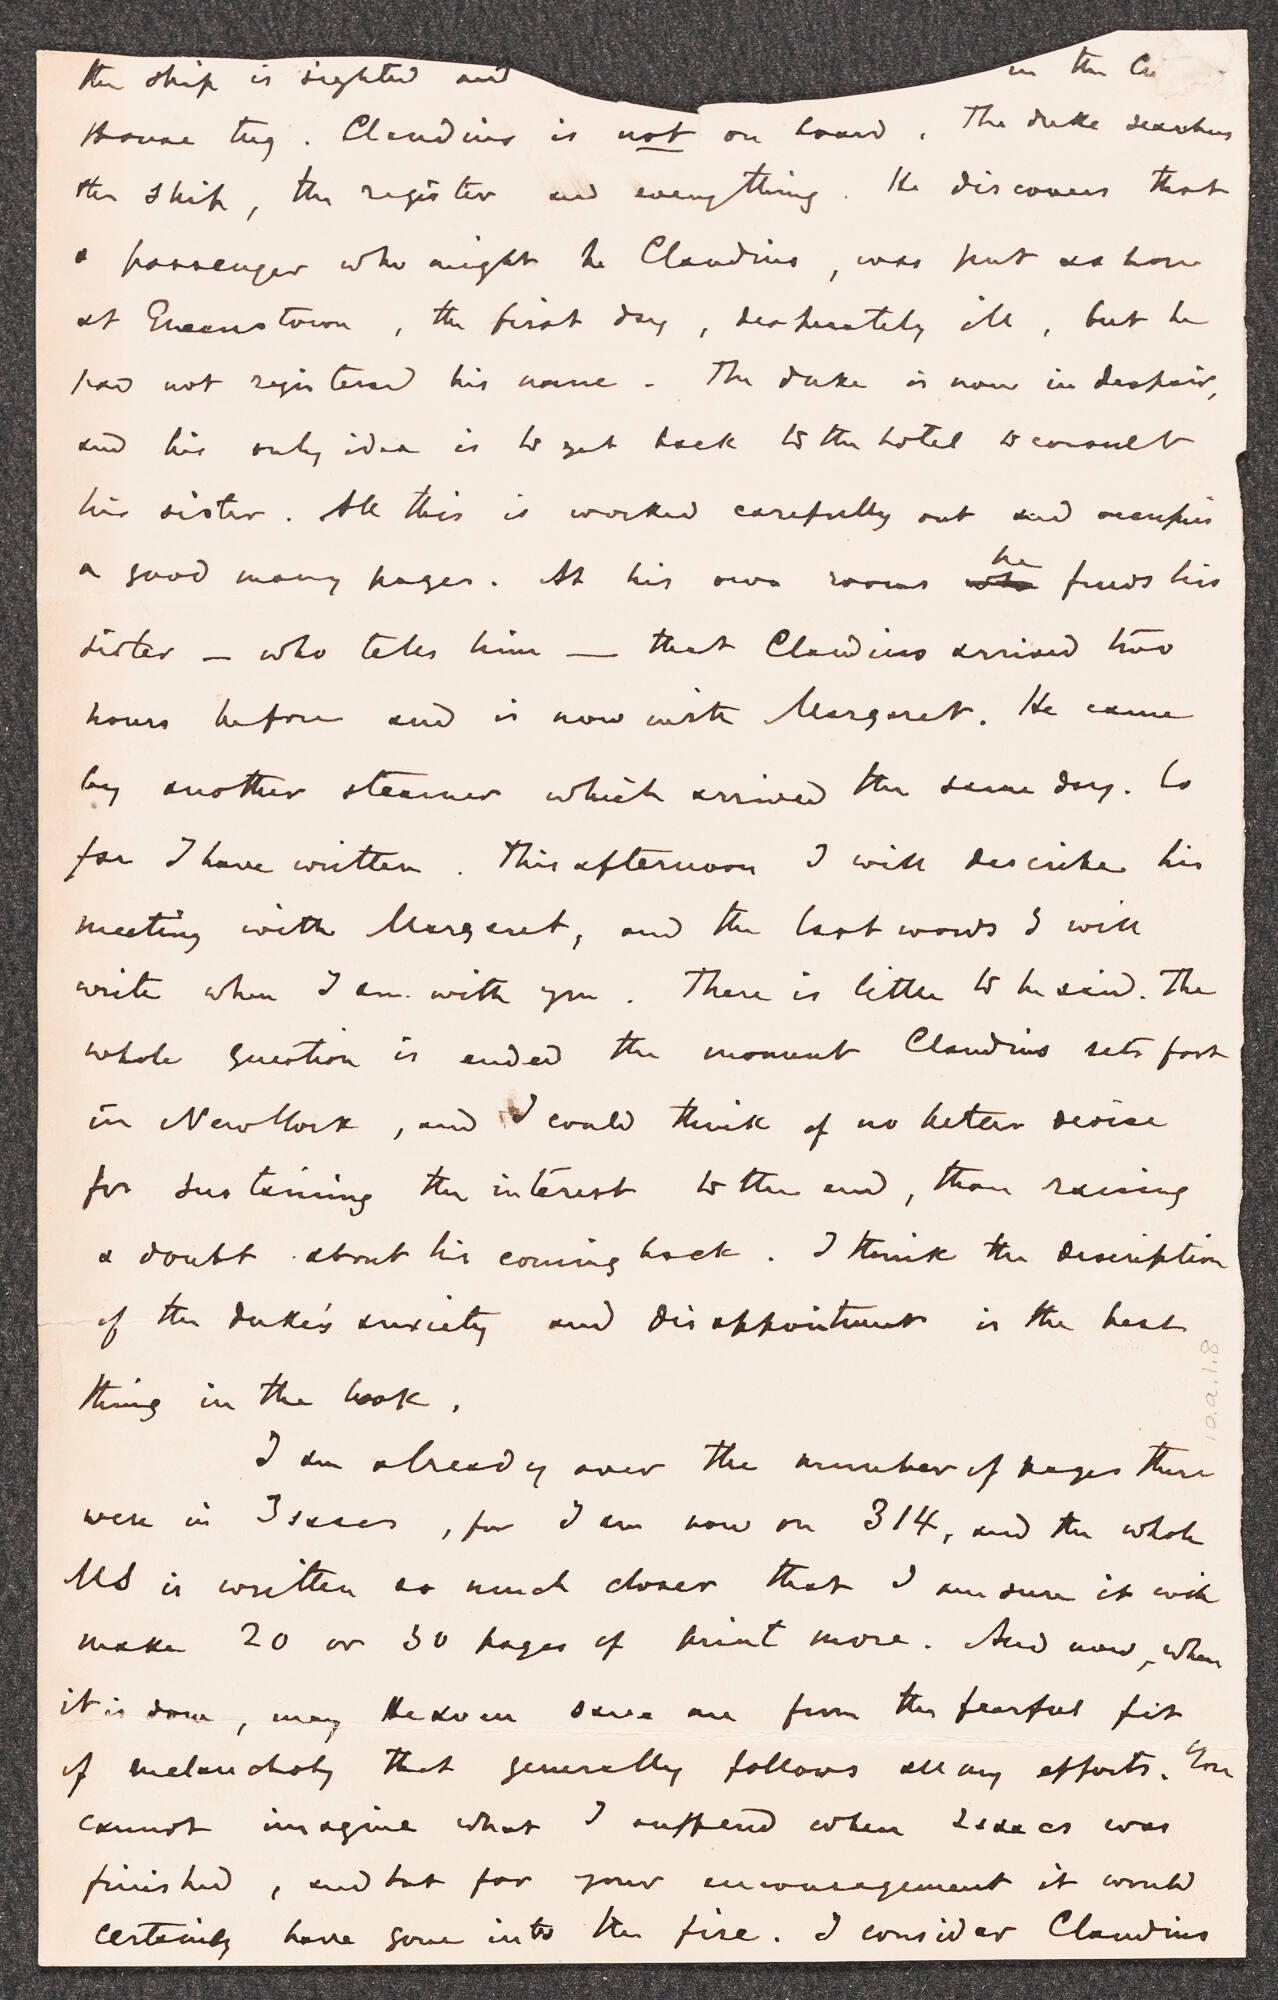 the ship is sighted and in the Cu
House tug. Claudius is not on board. The duke searches
the ship, the register and everything. He discovers that
a passenger who might be Claudius, was put ashore
at Queenstown, the first day, desperately ill, but he
had not registered his name. The duke is now in despair,
and his only idea is to get back to the hotel to consult
his sister. All this is worked carefully out and occupies
a good many pages. At his own rooms who he finds his
sister — who tells him — that Claudius arrived two
hours before and is now with Margaret. He came
by another steamer which arrived the same day. So
far I have written. This afternoon I will describe his
meeting with Margaret, and the last words I will
write when I am with you. There is little to be said. The
whole question is ended the moment Claudius sets foot
in New York, and I could think of no better device
for sustaining the interest to the end, than raising
a doubt about his coming back. I think the description
of the duke's anxiety and disappointment is the best
thing in the book.
I am already over the number of pages there
were in Isaacs, for I am now on 314, and the whole
MS is written so much closer that I am sure it will
make 20 or 30 pages of print more. And now, when
it is done, may Heaven save me from the fearful fit
of melancholy that generally follows all my efforts. You
cannot imagine what I suffered when Isaacs was
finished, and but for your encouragement it would
certainly have gone into the fire. I consider Claudius
10.a.1.8